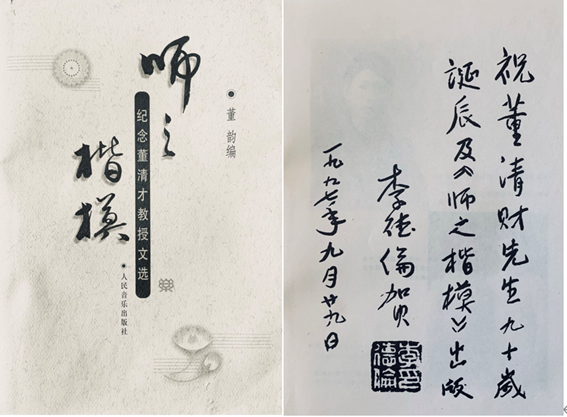 师之
楷模
纪念董清才教授文选
董韵编
人民音乐出版社
祝董清财先生九十歲
誕辰及《师之楷模》出版
李德倫贺
一九九七年九月廿九日
李德倫印